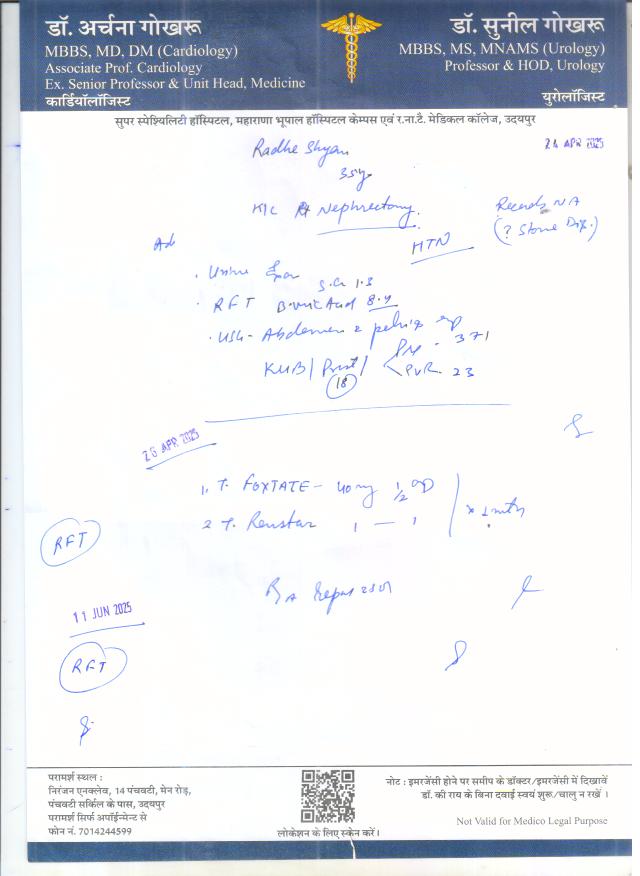 डॉ. अर्चना गोखरू
MBBS, MD, DM (Cardiology)
Associate Prof. Cardiology
Ex. Senior Professor & Unit Head, Medicine
कार्डियॉलॉजिस्ट
डॉ. सुनील गोखरू
MBBS, MS, MNAMS (Urology)
Professor & HOD, Urology
युरोलॉजिस्ट
सुपर स्पेश्यिलिटी हॉस्पिटल, महाराणा भूपाल हॉस्पिटल केम्पस एवं र.ना.टै. मेडिकल कॉलेज, उदयपुर
Radhe Shyam
24 APR 2025
35y
K/C Rt Nephrectomy.
Records NA
(? Stone Dis.)
HTN
Ad
. Urine
S.Cr 1.3
. RFT B. uric Acid 8.4
. USG - Abdomen & pelvis
KUB / Prost / Pre - 371
18 PVR 23
26 APR 2025
1. T. FOXTATE - 40 mg 1/2 OD
2 T. Renstar 1 — 1
x 1 mth
RFT
11 JUN 2025
RFT
परामर्श स्थल :
निरंजन एनक्लेव, 14 पंचवटी, मेन रोड़,
पंचवटी सर्किल के पास, उदयपुर
परामर्श सिर्फ अपॉईन्मेन्ट से
फोन नं. 7014244599
लोकेशन के लिए स्केन करें।
नोट : इमरजेंसी होने पर समीप के डॉक्टर/इमरजेंसी में दिखावें
डॉ. की राय के बिना दवाई स्वयं शुरू/चालु न रखें ।
Not Valid for Medico Legal Purpose